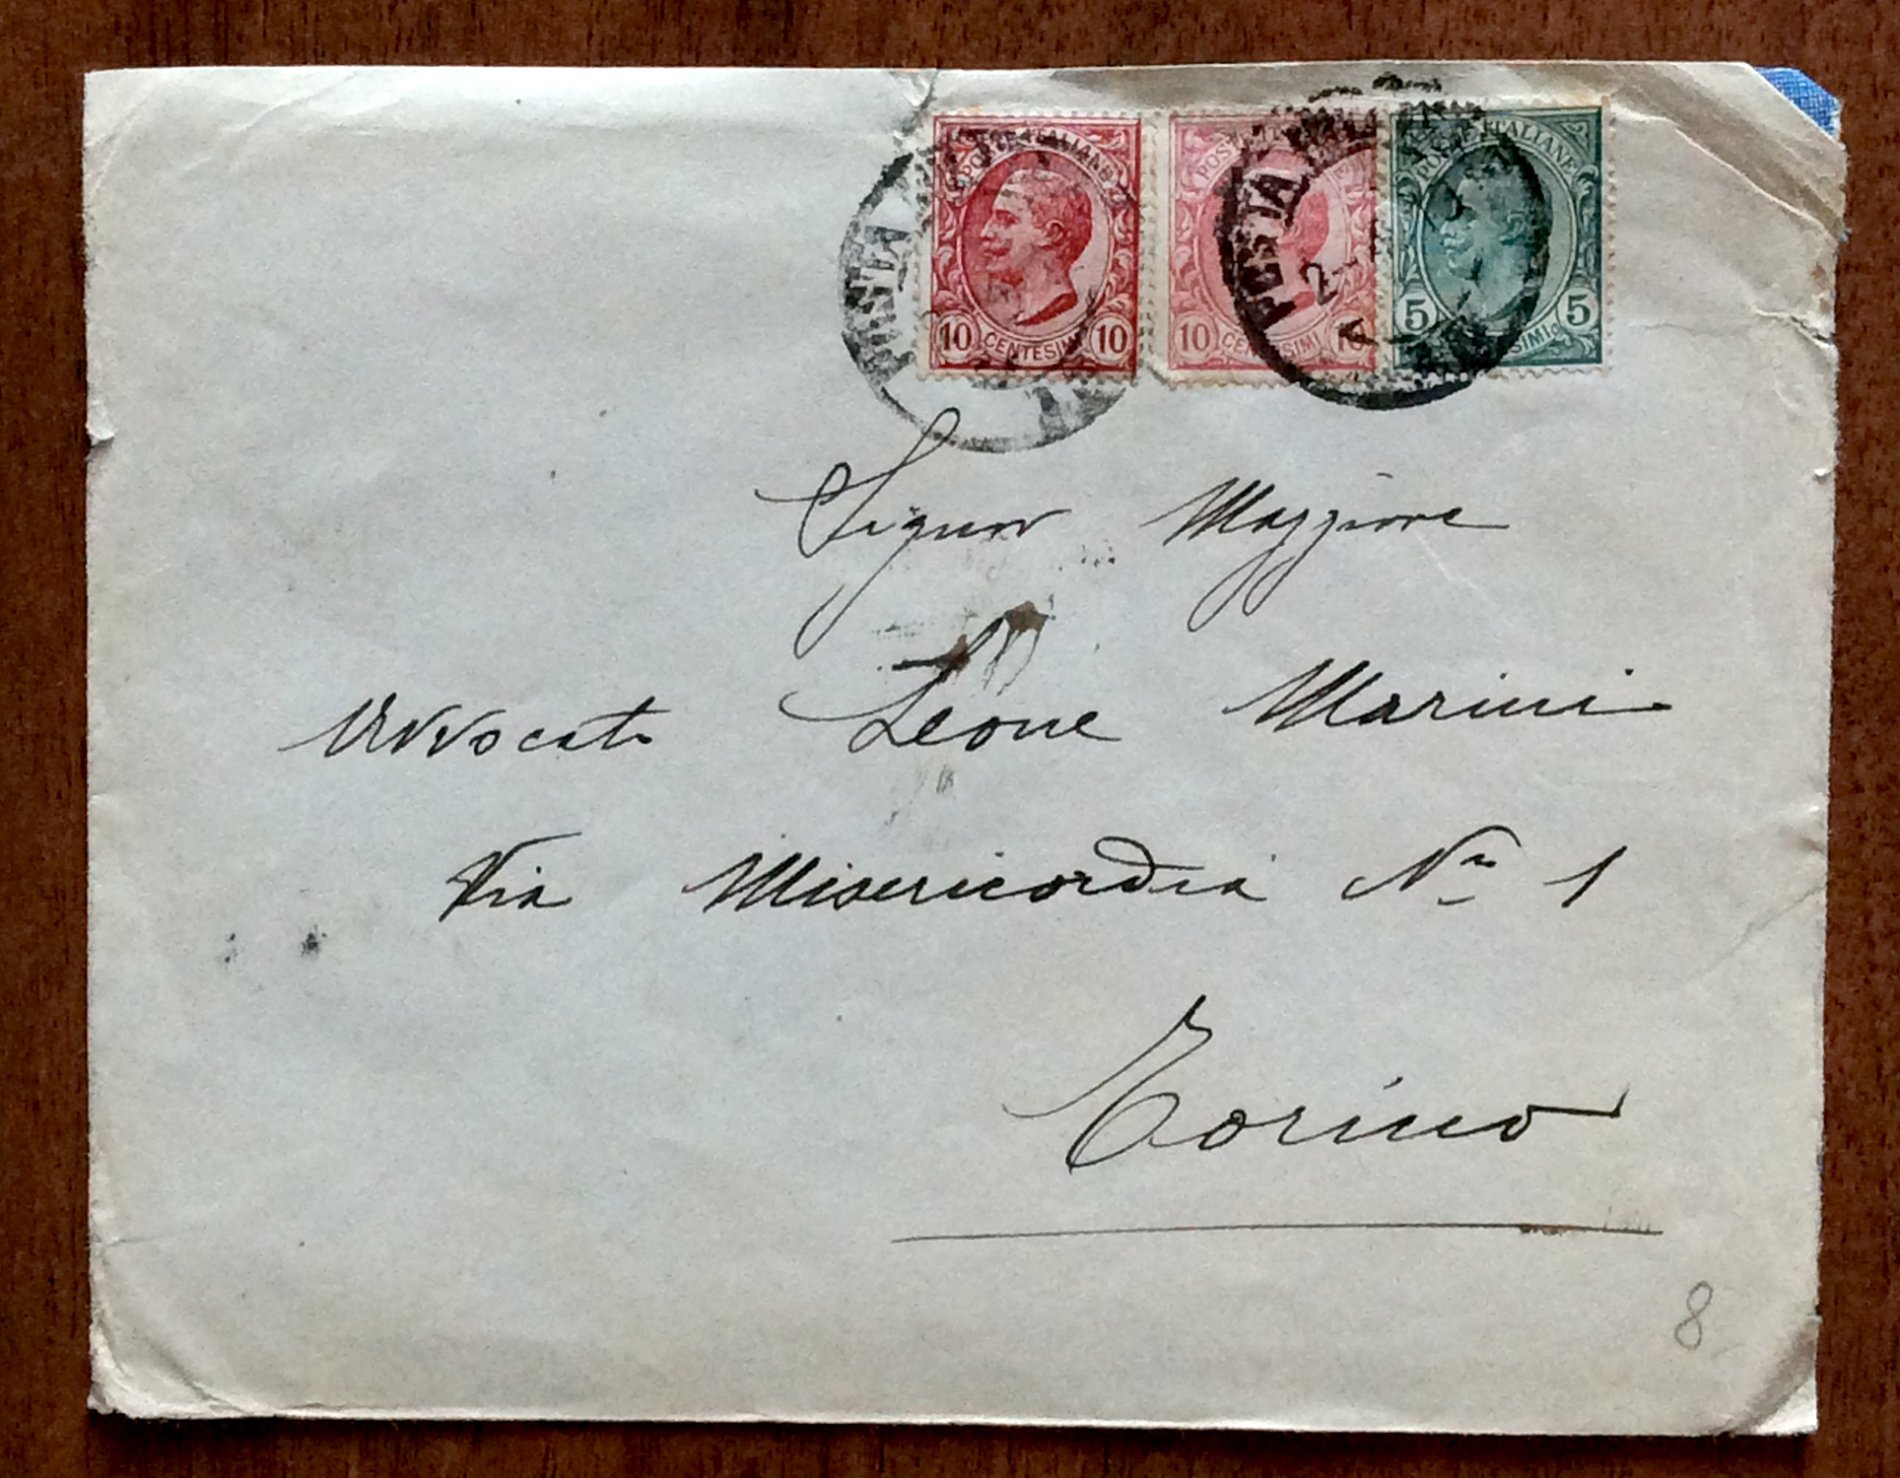 POSTE ITALIANE POSTE ITALIANE POSTE ITALIANE
POSTA POSTA
2
10 CENTESIMI 10 10 CENTESIMI 10 5 CENTESIMI 5
Signor Maggiore
Avvocato Leone Marini
Via Misericordia Nro 1
Torino
8